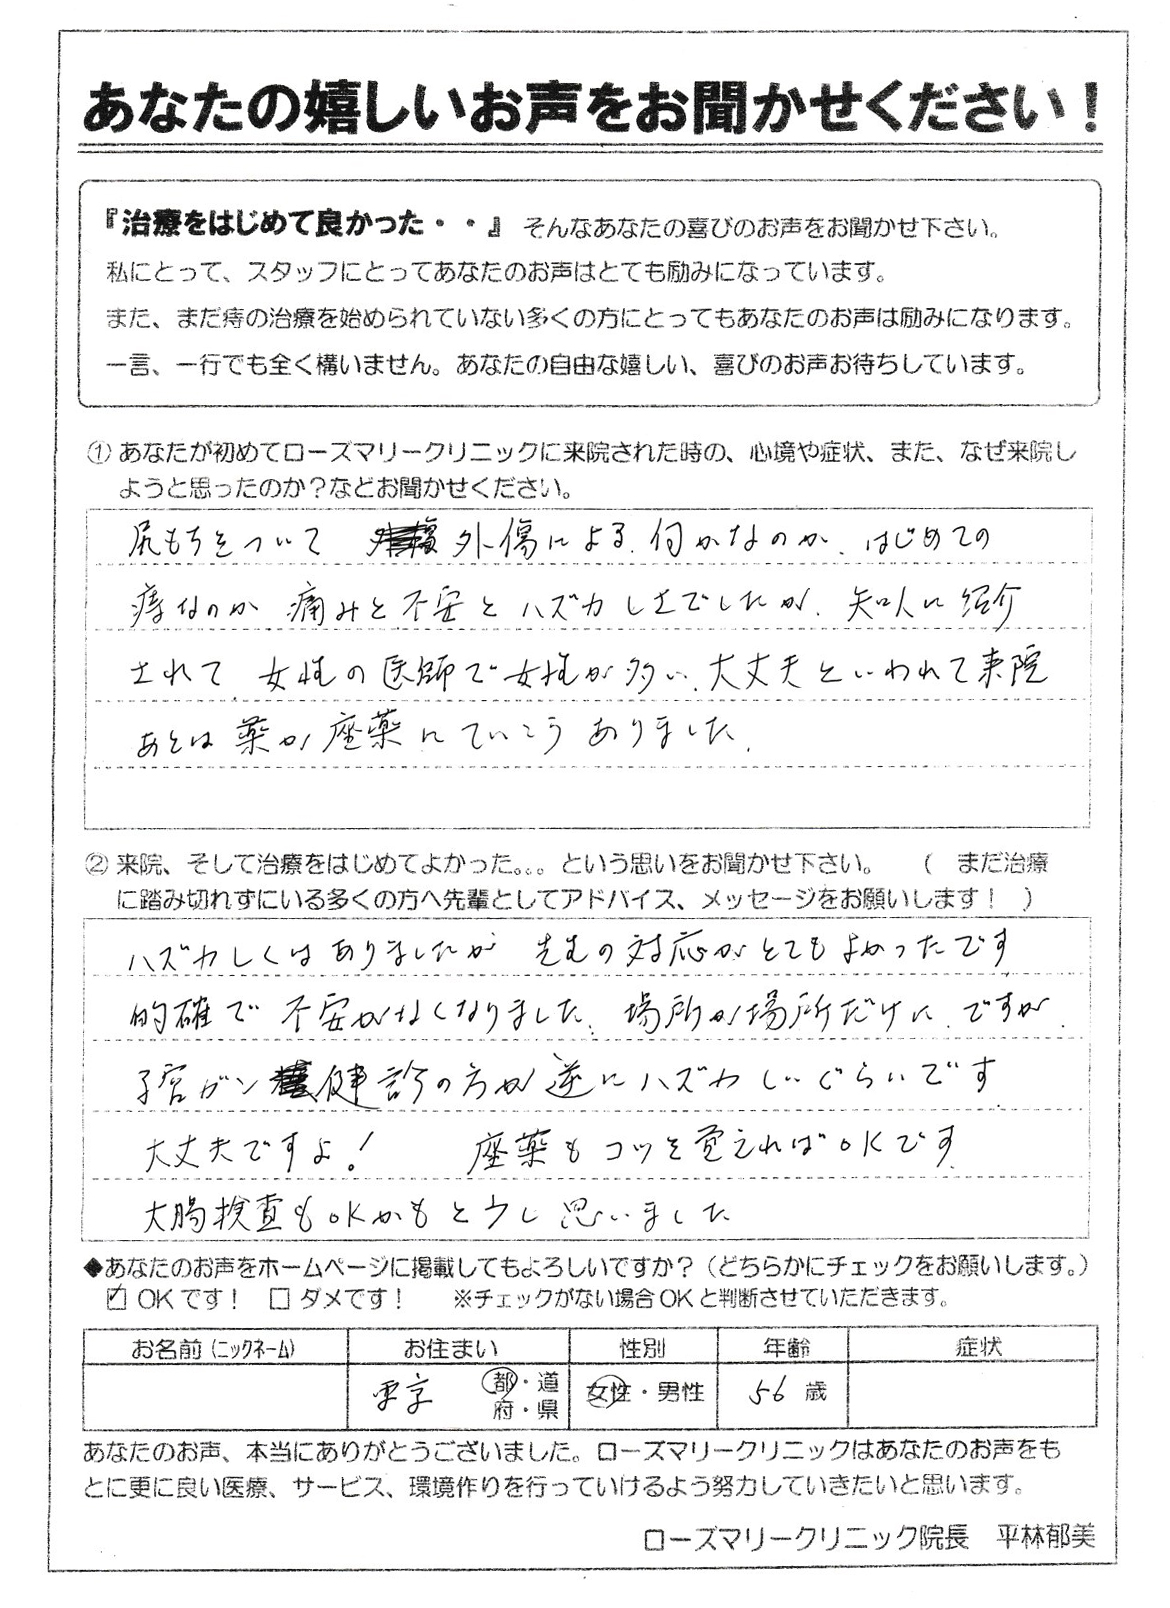 あなたの嬉しいお声をお聞かせください！
『治療をはじめて良かった・・』 そんなあなたの喜びのお声をお聞かせ下さい。
私にとって、スタッフにとってあなたのお声はとても励みになっています。
また、まだ痔の治療を始められていない多くの方にとってもあなたのお声は励みになります。
一言、一行でも全く構いません。あなたの自由な嬉しい、喜びのお声お待ちしています。
① あなたが初めてローズマリークリニックに来院された時の、心境や症状、また、なぜ来院し
ようと思ったのか？などお聞かせください。
尻もちをついて 外傷による何かなのか、はじめての
痔なのか 痛みと不安とハズカしさでしたが、知人に紹介
されて、女性の医師で女性が多い、大丈夫といわれて来院
あとは薬か座薬にていこうありました。
② 来院、そして治療をはじめてよかった。。。という思いをお聞かせ下さい。 （ まだ治療
に踏み切れずにいる多くの方へ先輩としてアドバイス、メッセージをお願いします！ ）
ハズカしくはありましたが 先生の対応がとてもよかったです
的確で不安がなくなりました。場所が場所だけに、ですが、
子宮ガン健診の方が逆にハズカしいぐらいです
大丈夫ですよ！ 座薬もコツを覚えればOKです
大腸検査もOKかもと少し思いました
◆あなたのお声をホームページに掲載してもよろしいですか？（どちらかにチェックをお願いします。）
☑ OKです！ □ ダメです！ ※チェックがない場合OKと判断させていただきます。
お名前（ニックネーム） お住まい 性別 年齢 症状
東京 都・道 女性・男性 56歳
府・県
あなたのお声、本当にありがとうございました。ローズマリークリニックはあなたのお声をも
とに更に良い医療、サービス、環境作りを行っていけるよう努力していきたいと思います。
ローズマリークリニック院長 平林郁美